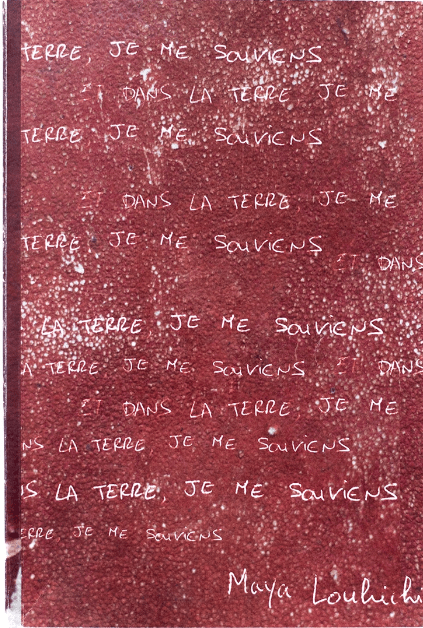 TERRE, JE ME SOUVIENS
ET DANS LA TERRE, JE ME
TERRE, JE ME SOUVIENS
ET DANS LA TERRE, JE ME
TERRE, JE ME SOUVIENS
ET DANS
LA TERRE, JE ME SOUVIENS
A TERRE, JE ME SOUVIENS ET DANS
ET DANS LA TERRE, JE ME
NS LA TERRE, JE ME SOUVIENS
NS LA TERRE, JE ME SOUVIENS
ERRE, JE ME SOUVIENS
Maya Louhichi